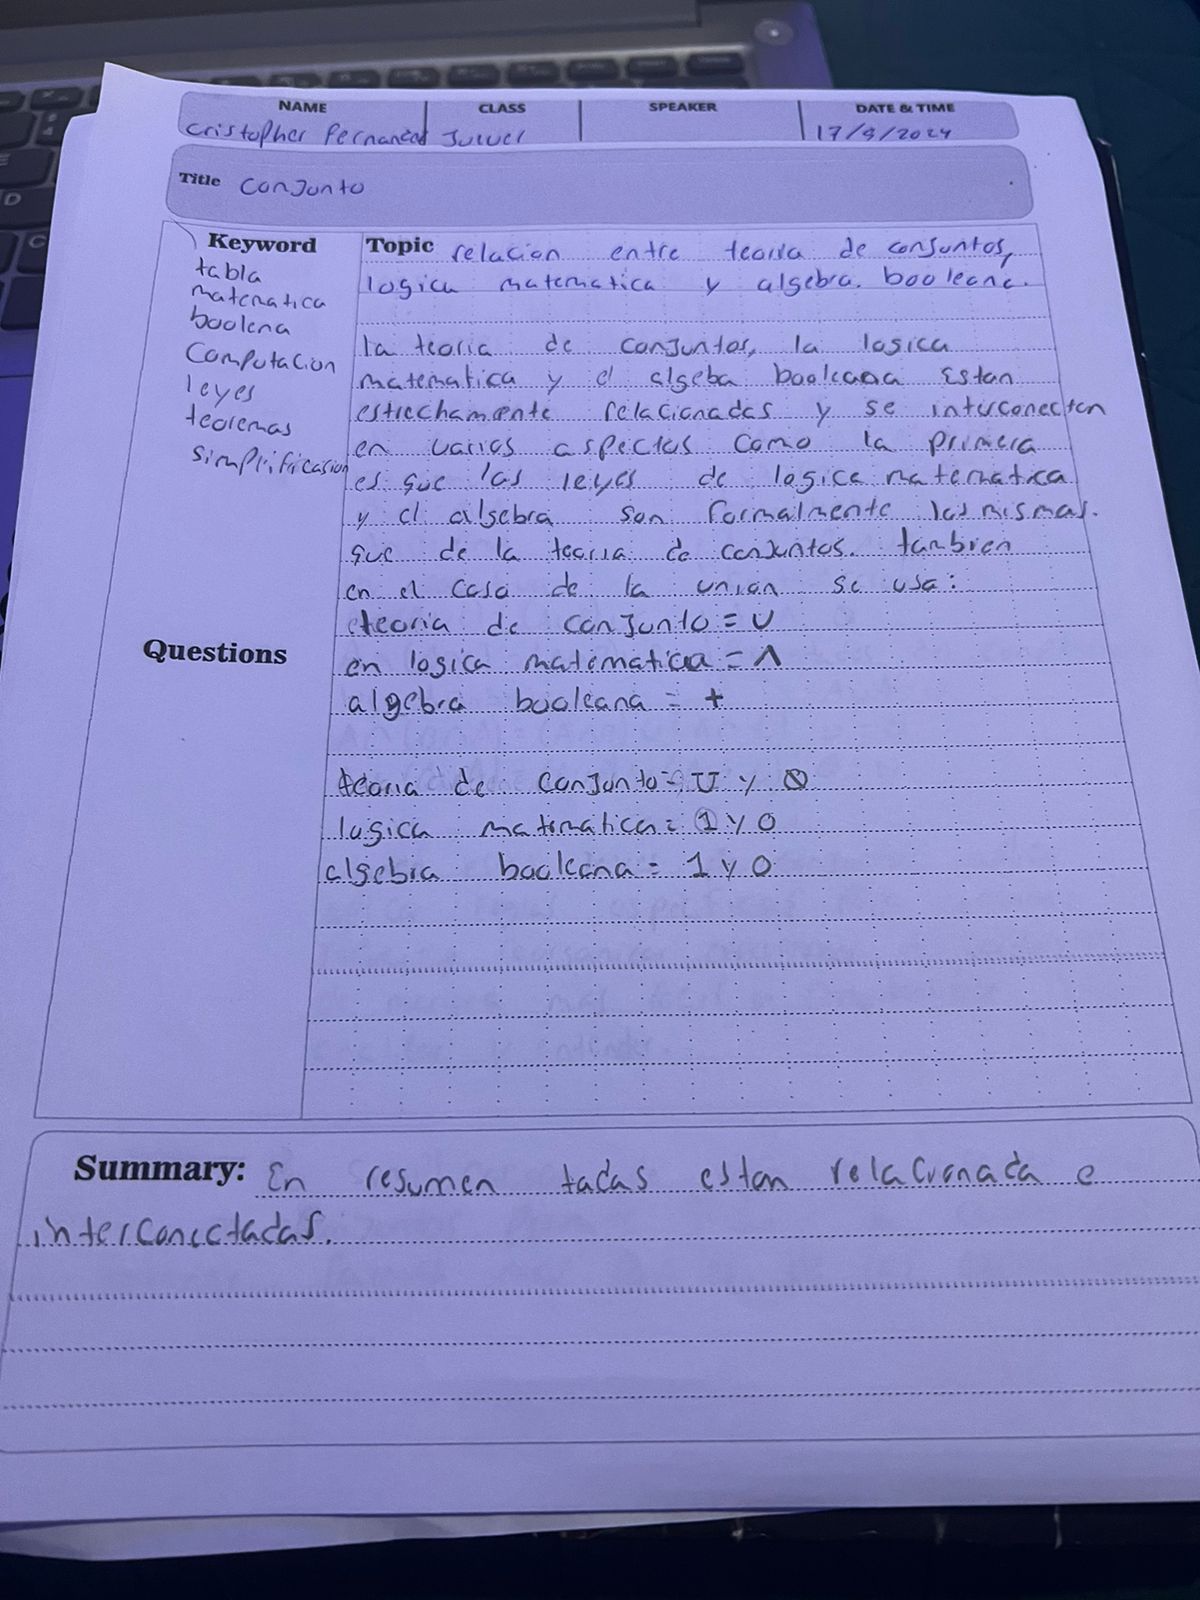 NAME CLASS SPEAKER DATE & TIME
Cristopher Fernandez Jueves 17/9/2024
Title Conjunto
Keyword
tabla
matematica
boolena
Computacion
leyes
teoremas
simplificasion
Questions
Topic relacion entre teoria de conjuntos,
logica matematica y algebra. booleana.
la teoria de conjuntos, la logica
matematica y el algeba booleana Estan
estrechamente relacionadas y se interconecten
en varios aspectos como la primera
es que las leyes de logica matematica
y el algebra son formalmente las mismas.
que de la teoria de conjuntos. tanbien
en el caso de la union se usa:
teoria de conjunto = U
en logica matematica = Λ
algebra booleana = +
teoria de conjunto = U y ∅
logica matematica = 1 y 0
algebra booleana = 1 y 0
Summary: En resumen todas estan relacionada e
interconectadas.